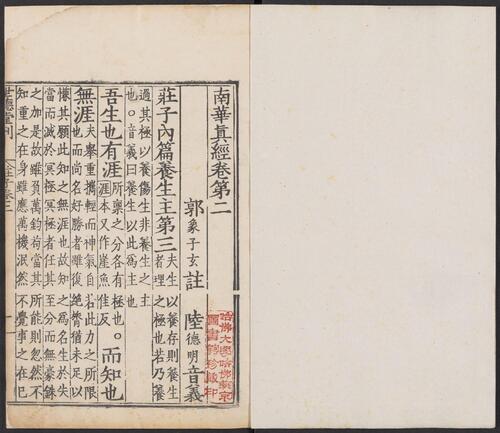 南華真經卷第二
郭象子玄註 陸德明音義
莊子內篇養生主第三 夫生以養存則養生者理之極也若乃養
過其極以養傷生非養生之主也。音義曰養生以此為主也
吾生也有涯 所稟之分各有極也。涯本又作崖魚佳反 。而知也
無涯 夫舉重攜輕而神氣自若此力之所限也而尚名好勝者雖復絕膂猶未足以
慊其願此知之無涯也故知之為名生於失當而滅於冥極冥極者任其至分而無毫銖
之加是故雖負萬鈞苟當其所能則忽然不知重之在身雖應萬機泯然不覺事之在己
世德堂刊
莊子卷二
一
哈佛大學哈佛燕京圖書館珍藏印